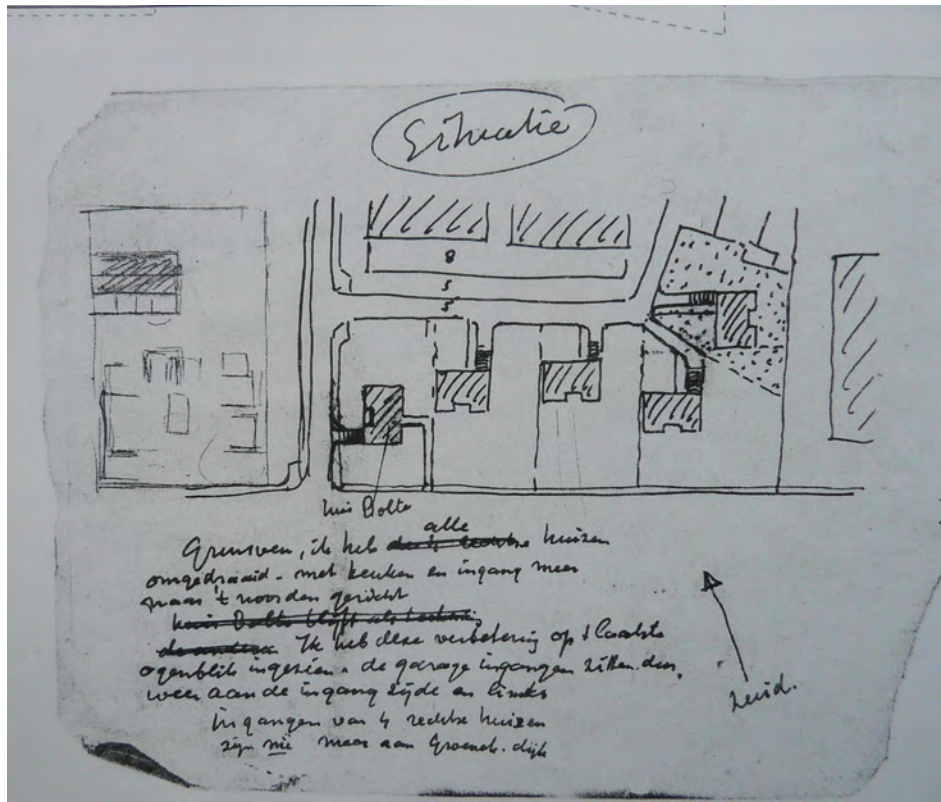 Situatie
8
5
5
huis Bolte
alle
Grunsven, ik heb de 4 rechtse huizen
omgedraaid - met keuken en ingang meer
naar 't noorden gericht
huis Bolte blijft als tekening
de andere Ik heb deze verbetering op 't laatste
ogenblik ingezien. de garage ingangen zitten dus
weer aan de ingang zijde en links
ingangen van 4 rechtse huizen
zijn nie meer aan Groenek. dijk
zuid.